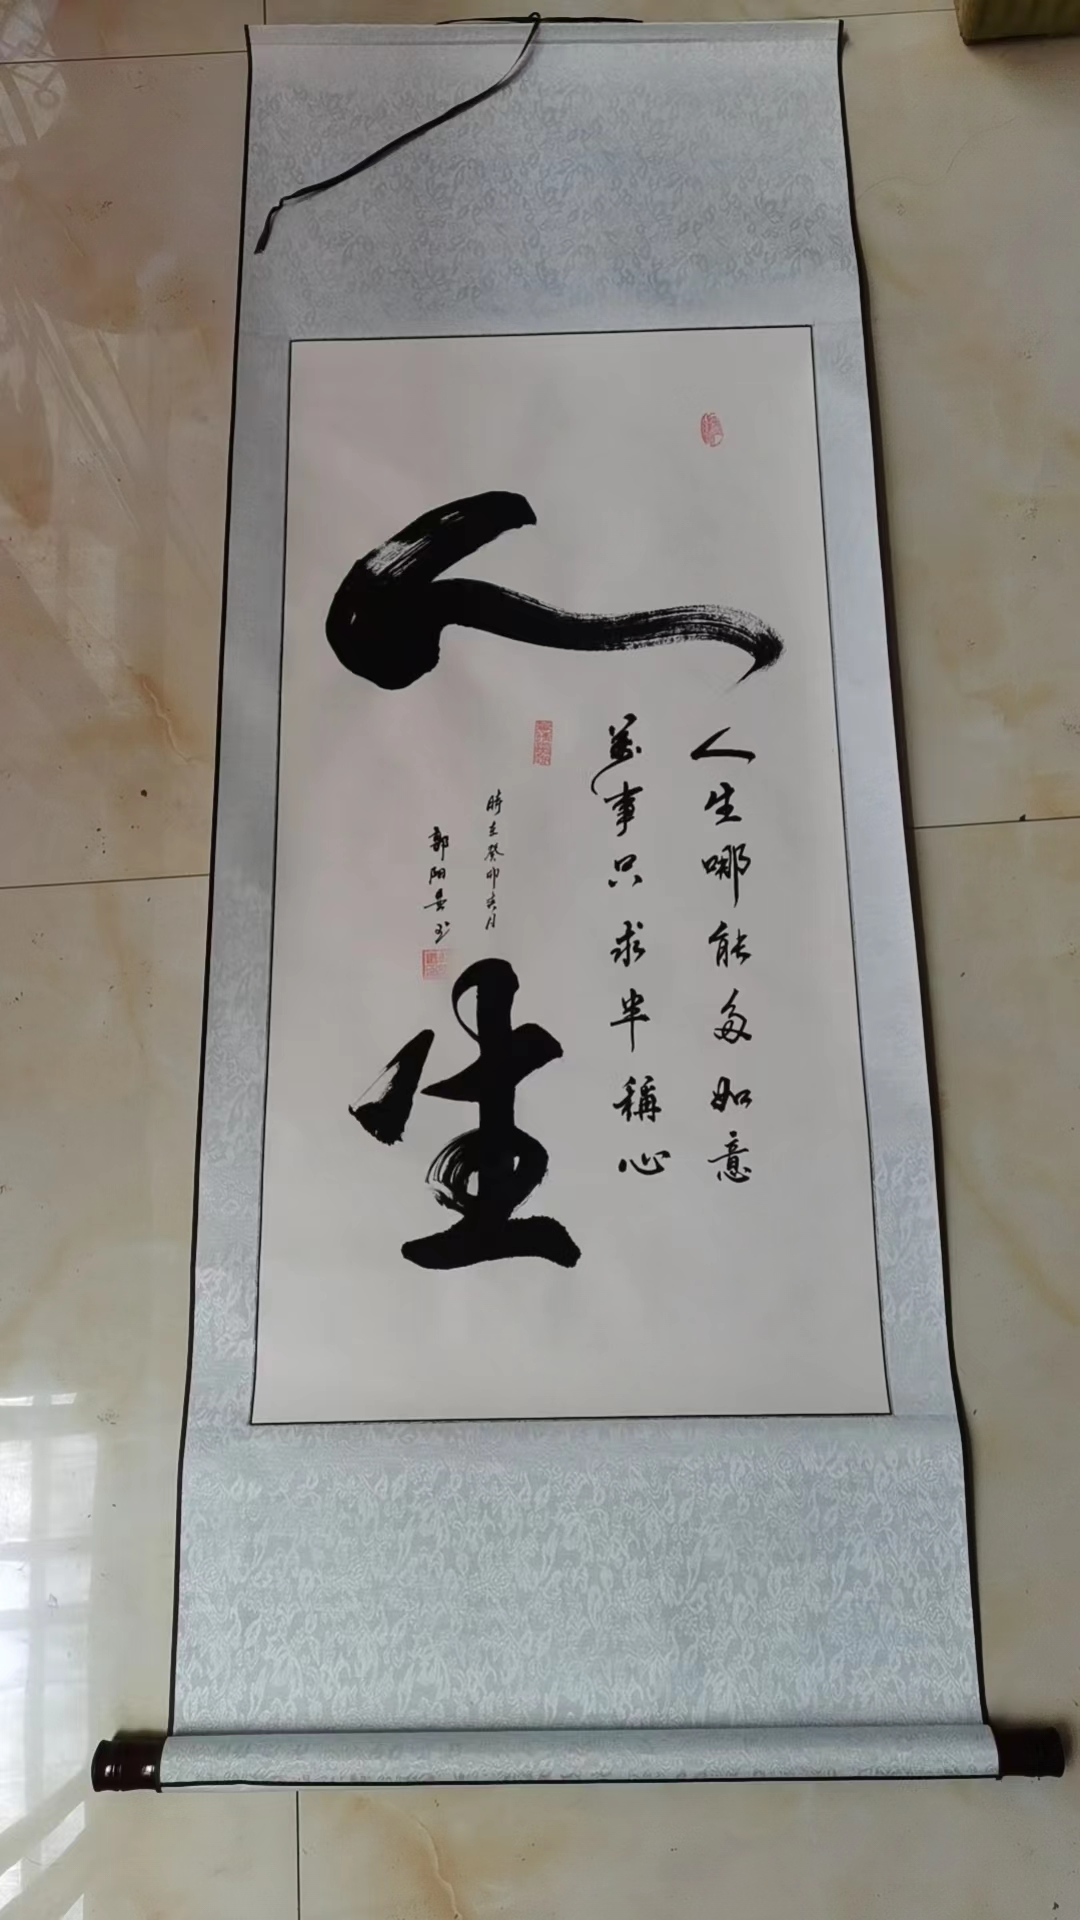 人生
人生哪能多如意
萬事只求半稱心
時在癸卯春月
郭阳